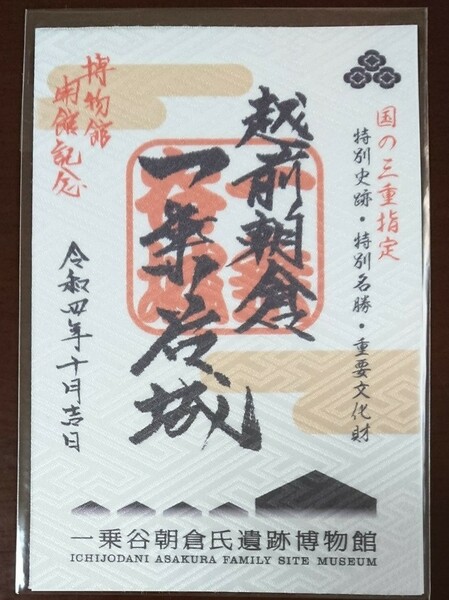 国の三重指定
特別史跡・特別名勝・重要文化財
越前朝倉
一乗谷城
博物館
開館記念
令和四年十月吉日
一乗谷朝倉氏遺跡博物館
ICHIJODANI ASAKURA FAMILY SITE MUSEUM